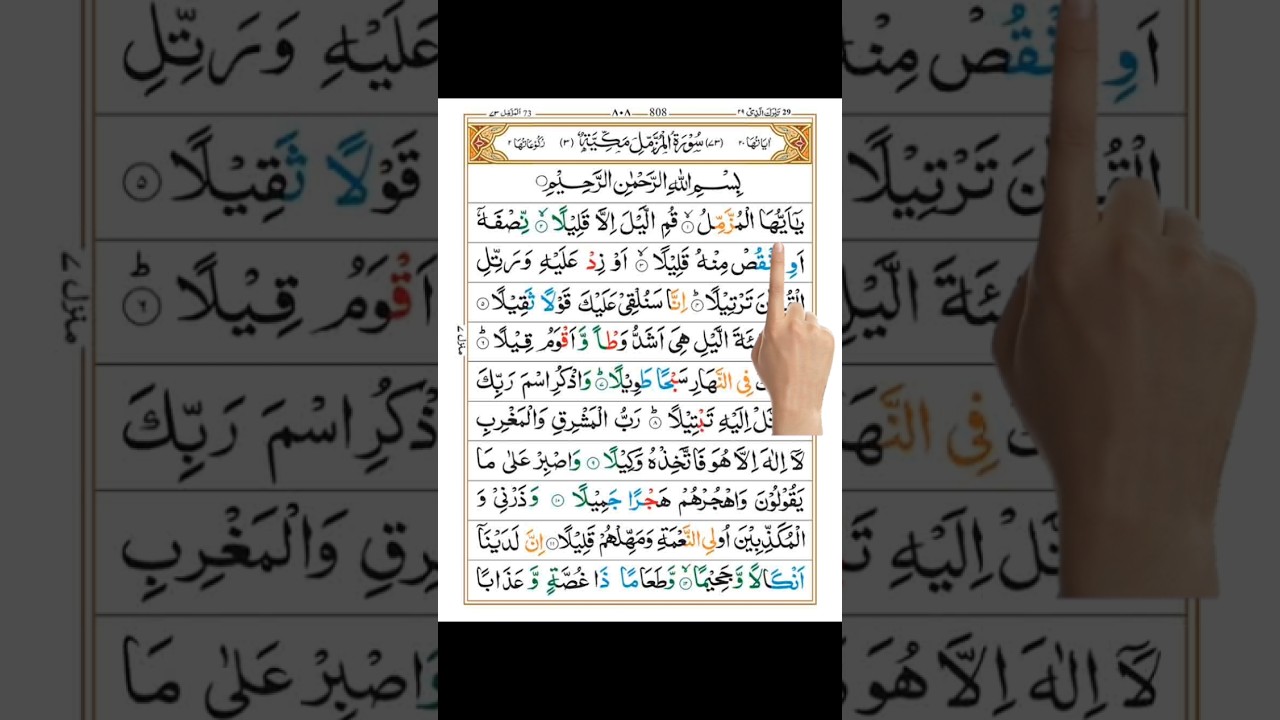 29 تبٰرك الذى ٢٩
808 ٨٠٨
73 المزمل ٧٣
اٰيَاتُهَا ٢٠ (٧٣) سُوْرَةُ الْمُزَّمِّلِ مَكِّيَّةٌ (٣) رُكُوْعَاتُهَا ٢
بِسْمِ اللّٰهِ الرَّحْمٰنِ الرَّحِيْمِ
يٰۤاَيُّهَا الْمُزَّمِّلُ ۙ١ قُمِ الَّيْلَ اِلَّا قَلِيْلًا ۙ٢ نِّصْفَهٗۤ
اَوِ انْقُصْ مِنْهُ قَلِيْلًا ۙ٣ اَوْ زِدْ عَلَيْهِ وَرَتِّلِ
تَرْتِيْلًا ؕ٤ اِنَّا سَنُلْقِيْ عَلَيْكَ قَوْلًا ثَقِيْلًا ٥
الَّيْلِ هِيَ اَشَدُّ وَطْاً وَّاَقْوَمُ قِيْلًا ؕ٦
فِي النَّهَارِ سَبْحًا طَوِيْلًا ؕ٧ وَاذْكُرِ اسْمَ رَبِّكَ
اِلَيْهِ تَبْتِيْلًا ؕ٨ رَبُّ الْمَشْرِقِ وَالْمَغْرِبِ
لَاۤ اِلٰهَ اِلَّا هُوَ فَاتَّخِذْهُ وَكِيْلًا ٩ وَاصْبِرْ عَلٰى مَا
يَقُوْلُوْنَ وَاهْجُرْهُمْ هَجْرًا جَمِيْلًا ١٠ وَذَرْنِيْ وَ
الْمُكَذِّبِيْنَ اُولِي النَّعْمَةِ وَمَهِّلْهُمْ قَلِيْلًا ١١ اِنَّ لَدَيْنَاۤ
اَنْكَالًا وَّجَحِيْمًا ۙ١٢ وَّطَعَامًا ذَا غُصَّةٍ وَّعَذَابًا
منزل ٧